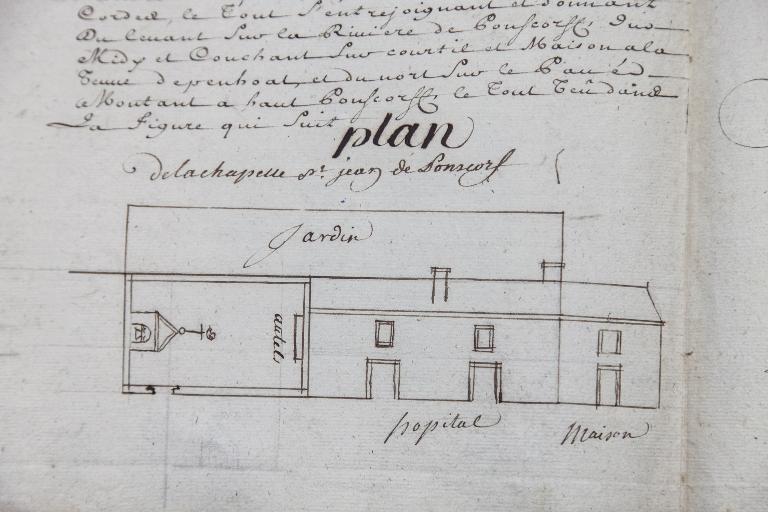 Cordes, le Tout S'entrejoignant et donnant
Du levant Sur la Riviere de Ponscorff, Duo
Midy et Couchant Sur courtil et Maison ala
Tenue depenhoat, et du nort Sur le Pavé
a Montant a haut Ponscorff, le Tout
La figure qui Suit
plan
delachapelle st. jean de Ponscorf
jardin
autels
hopital
Maison